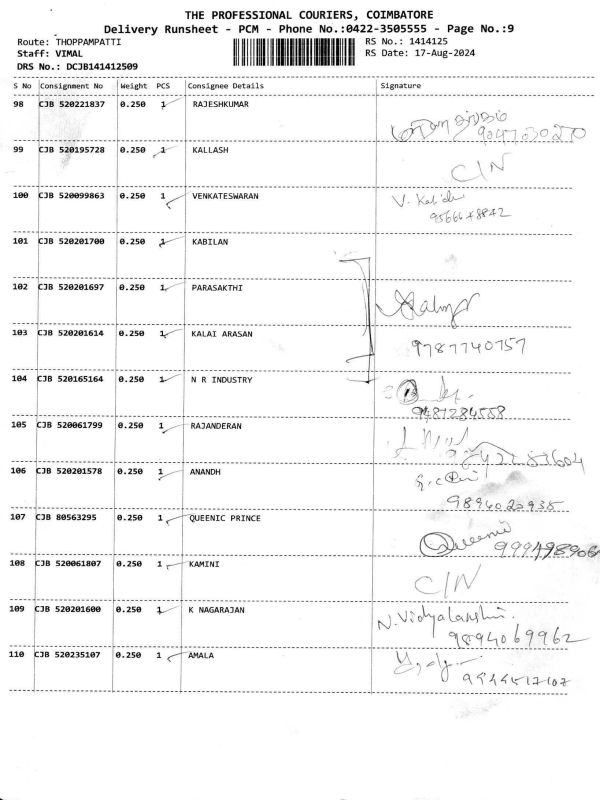 THE PROFESSIONAL COURIERS, COIMBATORE
Delivery Runsheet - PCM - Phone No.:0422-3505555 - Page No.:9
Route: THOPPAMPATTI RS No.: 1414125
Staff: VIMAL RS Date: 17-Aug-2024
DRS No.: DCJB141412509
S No Consignment No Weight PCS Consignee Details Signature
98 CJB 520221837 0.250 1 RAJESHKUMAR
99 CJB 520195728 0.250 1 KALLASH
C/N
100 CJB 520099863 0.250 1 VENKATESWARAN
101 CJB 520201700 0.250 1 KABILAN
102 CJB 520201697 0.250 1 PARASAKTHI
103 CJB 520201614 0.250 1 KALAI ARASAN
9787740757
104 CJB 520165164 0.250 1 N R INDUSTRY
9487284558
105 CJB 520061799 0.250 1 RAJANDERAN
106 CJB 520201578 0.250 1 ANANDH
107 CJB 80563295 0.250 1 QUEENIC PRINCE
Queenic
108 CJB 520061807 0.250 1 KAMINI
C/N
109 CJB 520201600 0.250 1 K NAGARAJAN
N. Vidyalakshmi.
9894069962
110 CJB 520235107 0.250 1 AMALA